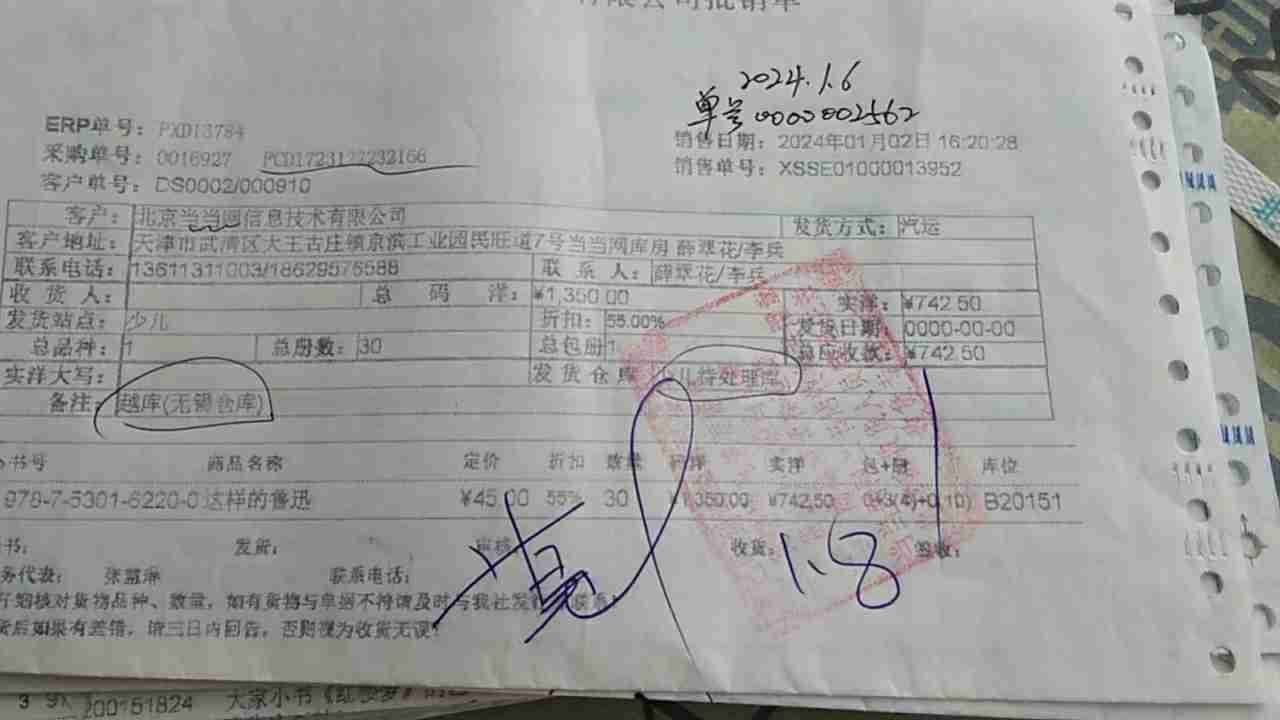 有限公司批销单
2024.1.6
单号0000002562
ERP单号: PXD13784
采购单号: 0016927 PCD1723122232166
客户单号: DS0002/000910
销售日期: 2024年01月02日 16:20:28
销售单号: XSSE01000013952
客户: 北京当当网信息技术有限公司 发货方式: 汽运
客户地址: 天津市武清区大王古庄镇京滨工业园民旺道7号当当网库房 薛翠花/李兵
联系电话: 13611311003/18629576588 联系人: 薛翠花/李兵
收货人: 总码洋: ¥1,350.00 实洋: ¥742.50
发货站点: 少儿 折扣: 55.00% 发货日期: 0000-00-00
总品种: 1 总册数: 30 总包册 1 总应收款: ¥742.50
实洋大写: 发货仓库 少儿待处理库
备注: 越库(无锡仓库)
书号 商品名称 定价 折扣 数量 码洋 实洋 包+册 库位
978-7-5301-6220-0 这样的鲁迅 ¥45.00 55% 30 ¥1,350.00 ¥742.50 B20151
书: 发货: 审核 收货: 签收:
1.8
务代表: 张慧琳 联系电话:
仔细核对货物品种、数量,如有货物与单据不符请及时与我社发行 联系!
货后如果有差错,请三日内回告,否则视为收货无误!
3 9\ 200151824 大家小书《红楼梦》